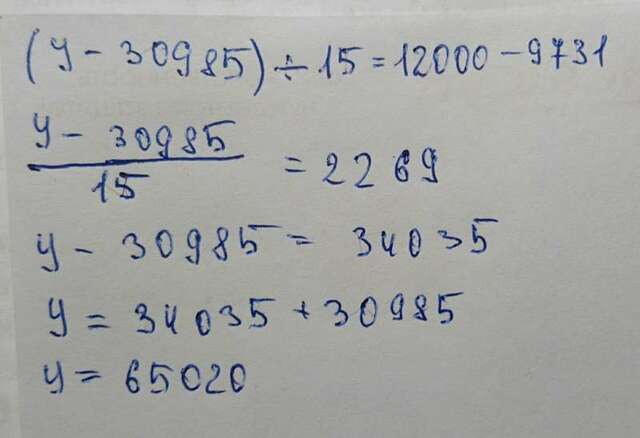 (y - 30985) ÷ 15 = 12000 - 9731
y - 30985
15
= 2269
y - 30985 = 34035
y = 34035 + 30985
y = 65020